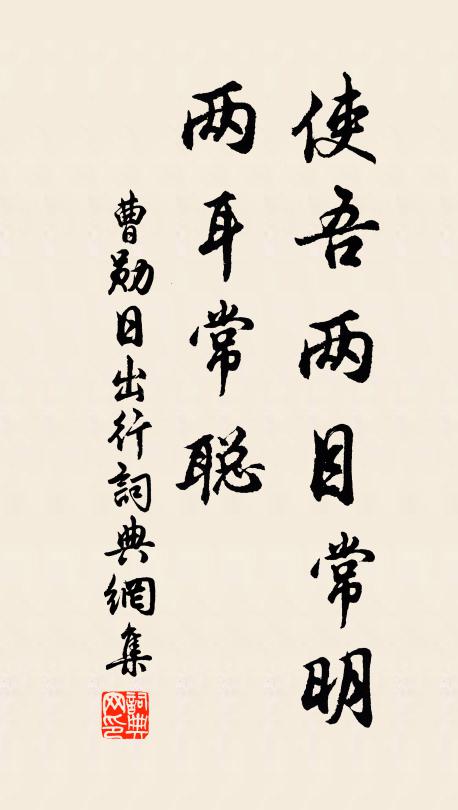 使吾两目常明
两耳常聪
曹勋日出行詞典網集
詞典网印